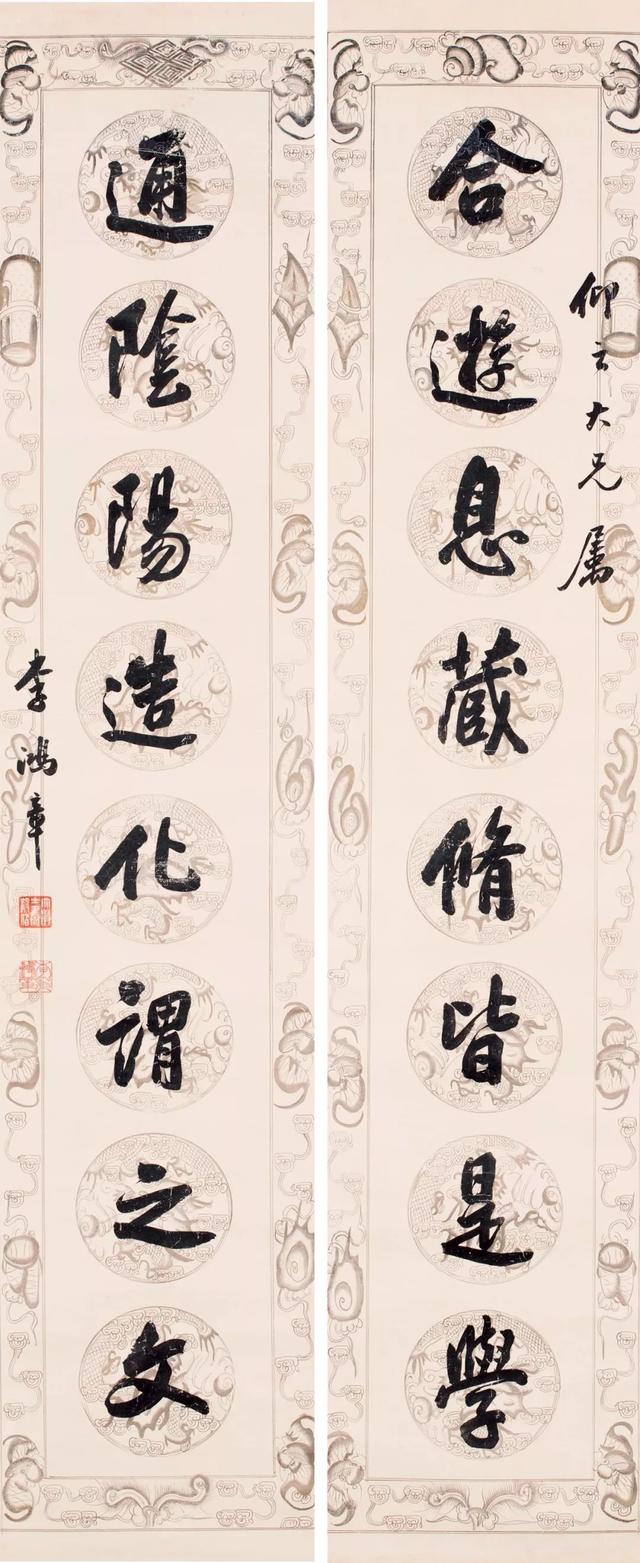 仰云大兄属
合遊息藏脩皆是學
通陰陽造化謂之文
李鴻章